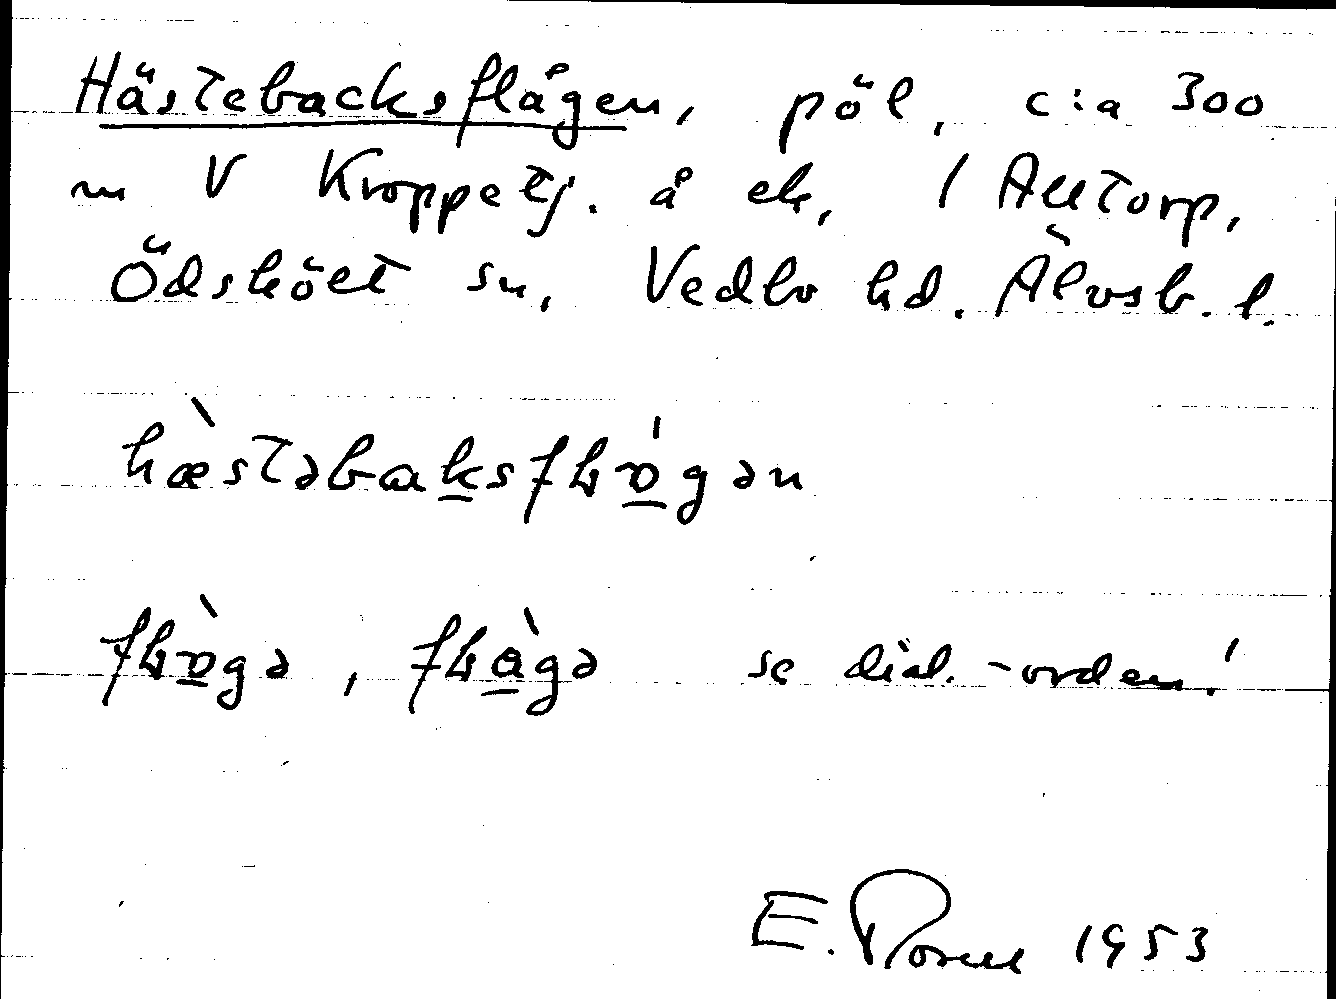 Hästebacksflågen, pöl, c:a 300
m V Kroppetj. å ek, / Alltorp,
Ödskölt sn, Vedbo hd. Älvsb. l.
hæ̀stəbaksfɫɒ́gən
fɫɒ̀gə, fɫàgə se dial.-orden!
E. 1953